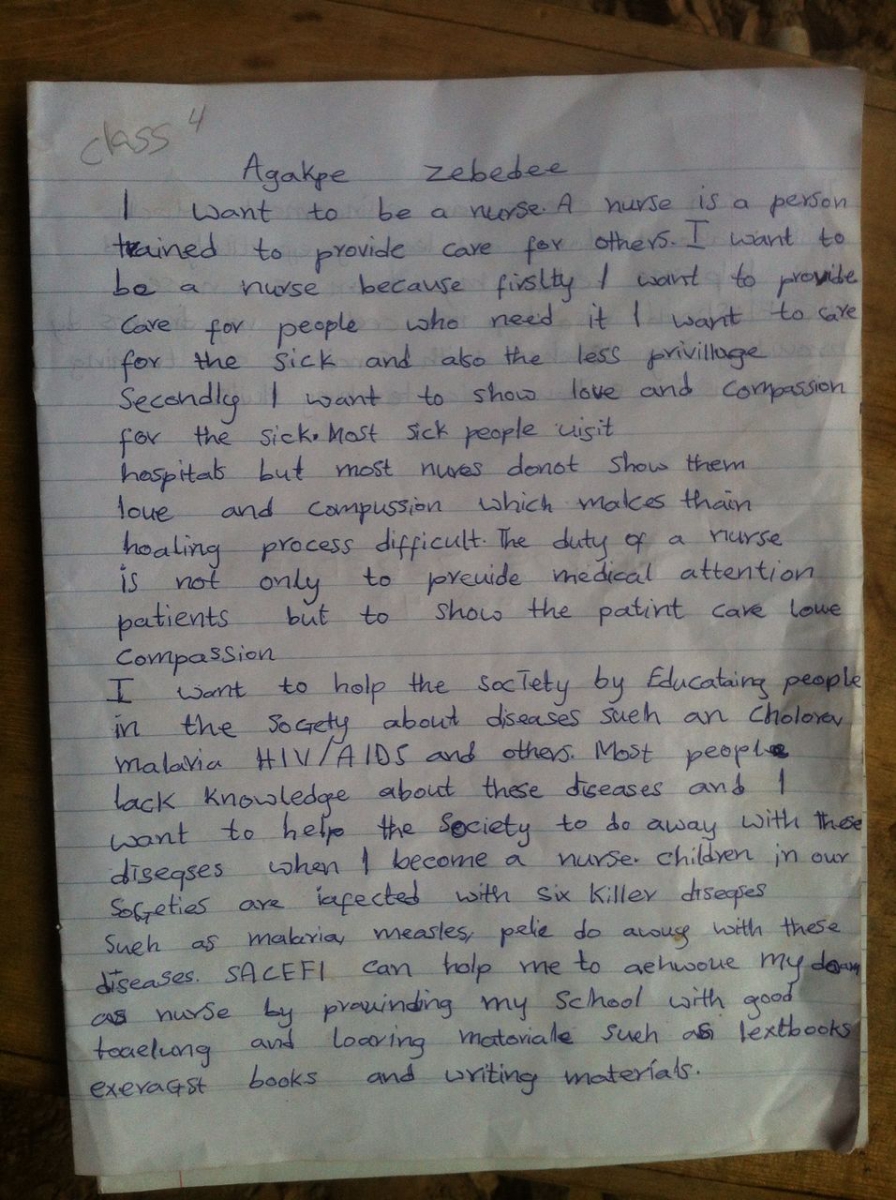 class 4
Agakpe Zebedee
I want to be a nurse. A nurse is a person
trained to provide care for others. I want to
be a nurse because firslty I want to provide
care for people who need it I want to care
for the sick and also the less privillage
Secondly I want to show love and compassion
for the sick. Most sick people uisit
hospitals but most nures donot show them
loue and compussion which makes thain
hoaling process difficult. The duty of a nurse
is not only to preuide medical attention
patients but to show the patint care loue
compassion
I want to holp the society by Educataing people
in the socety about diseases sueh an cholorev
malaria HIV/AIDS and others. Most people
lack knowledge about these diseases and I
want to help the Society to do away with these
diseqses when I become a nurse. children in our
socgeties are iafected with six killer diseqses
sueh as malaria, measles, pelie do awouy with these
diseases. SACEFI can holp me to aehwoue my
as nurse by prowinding my School with good
toaelung and looring matoriale sueh as textbooks
exeragst books and writing materials.